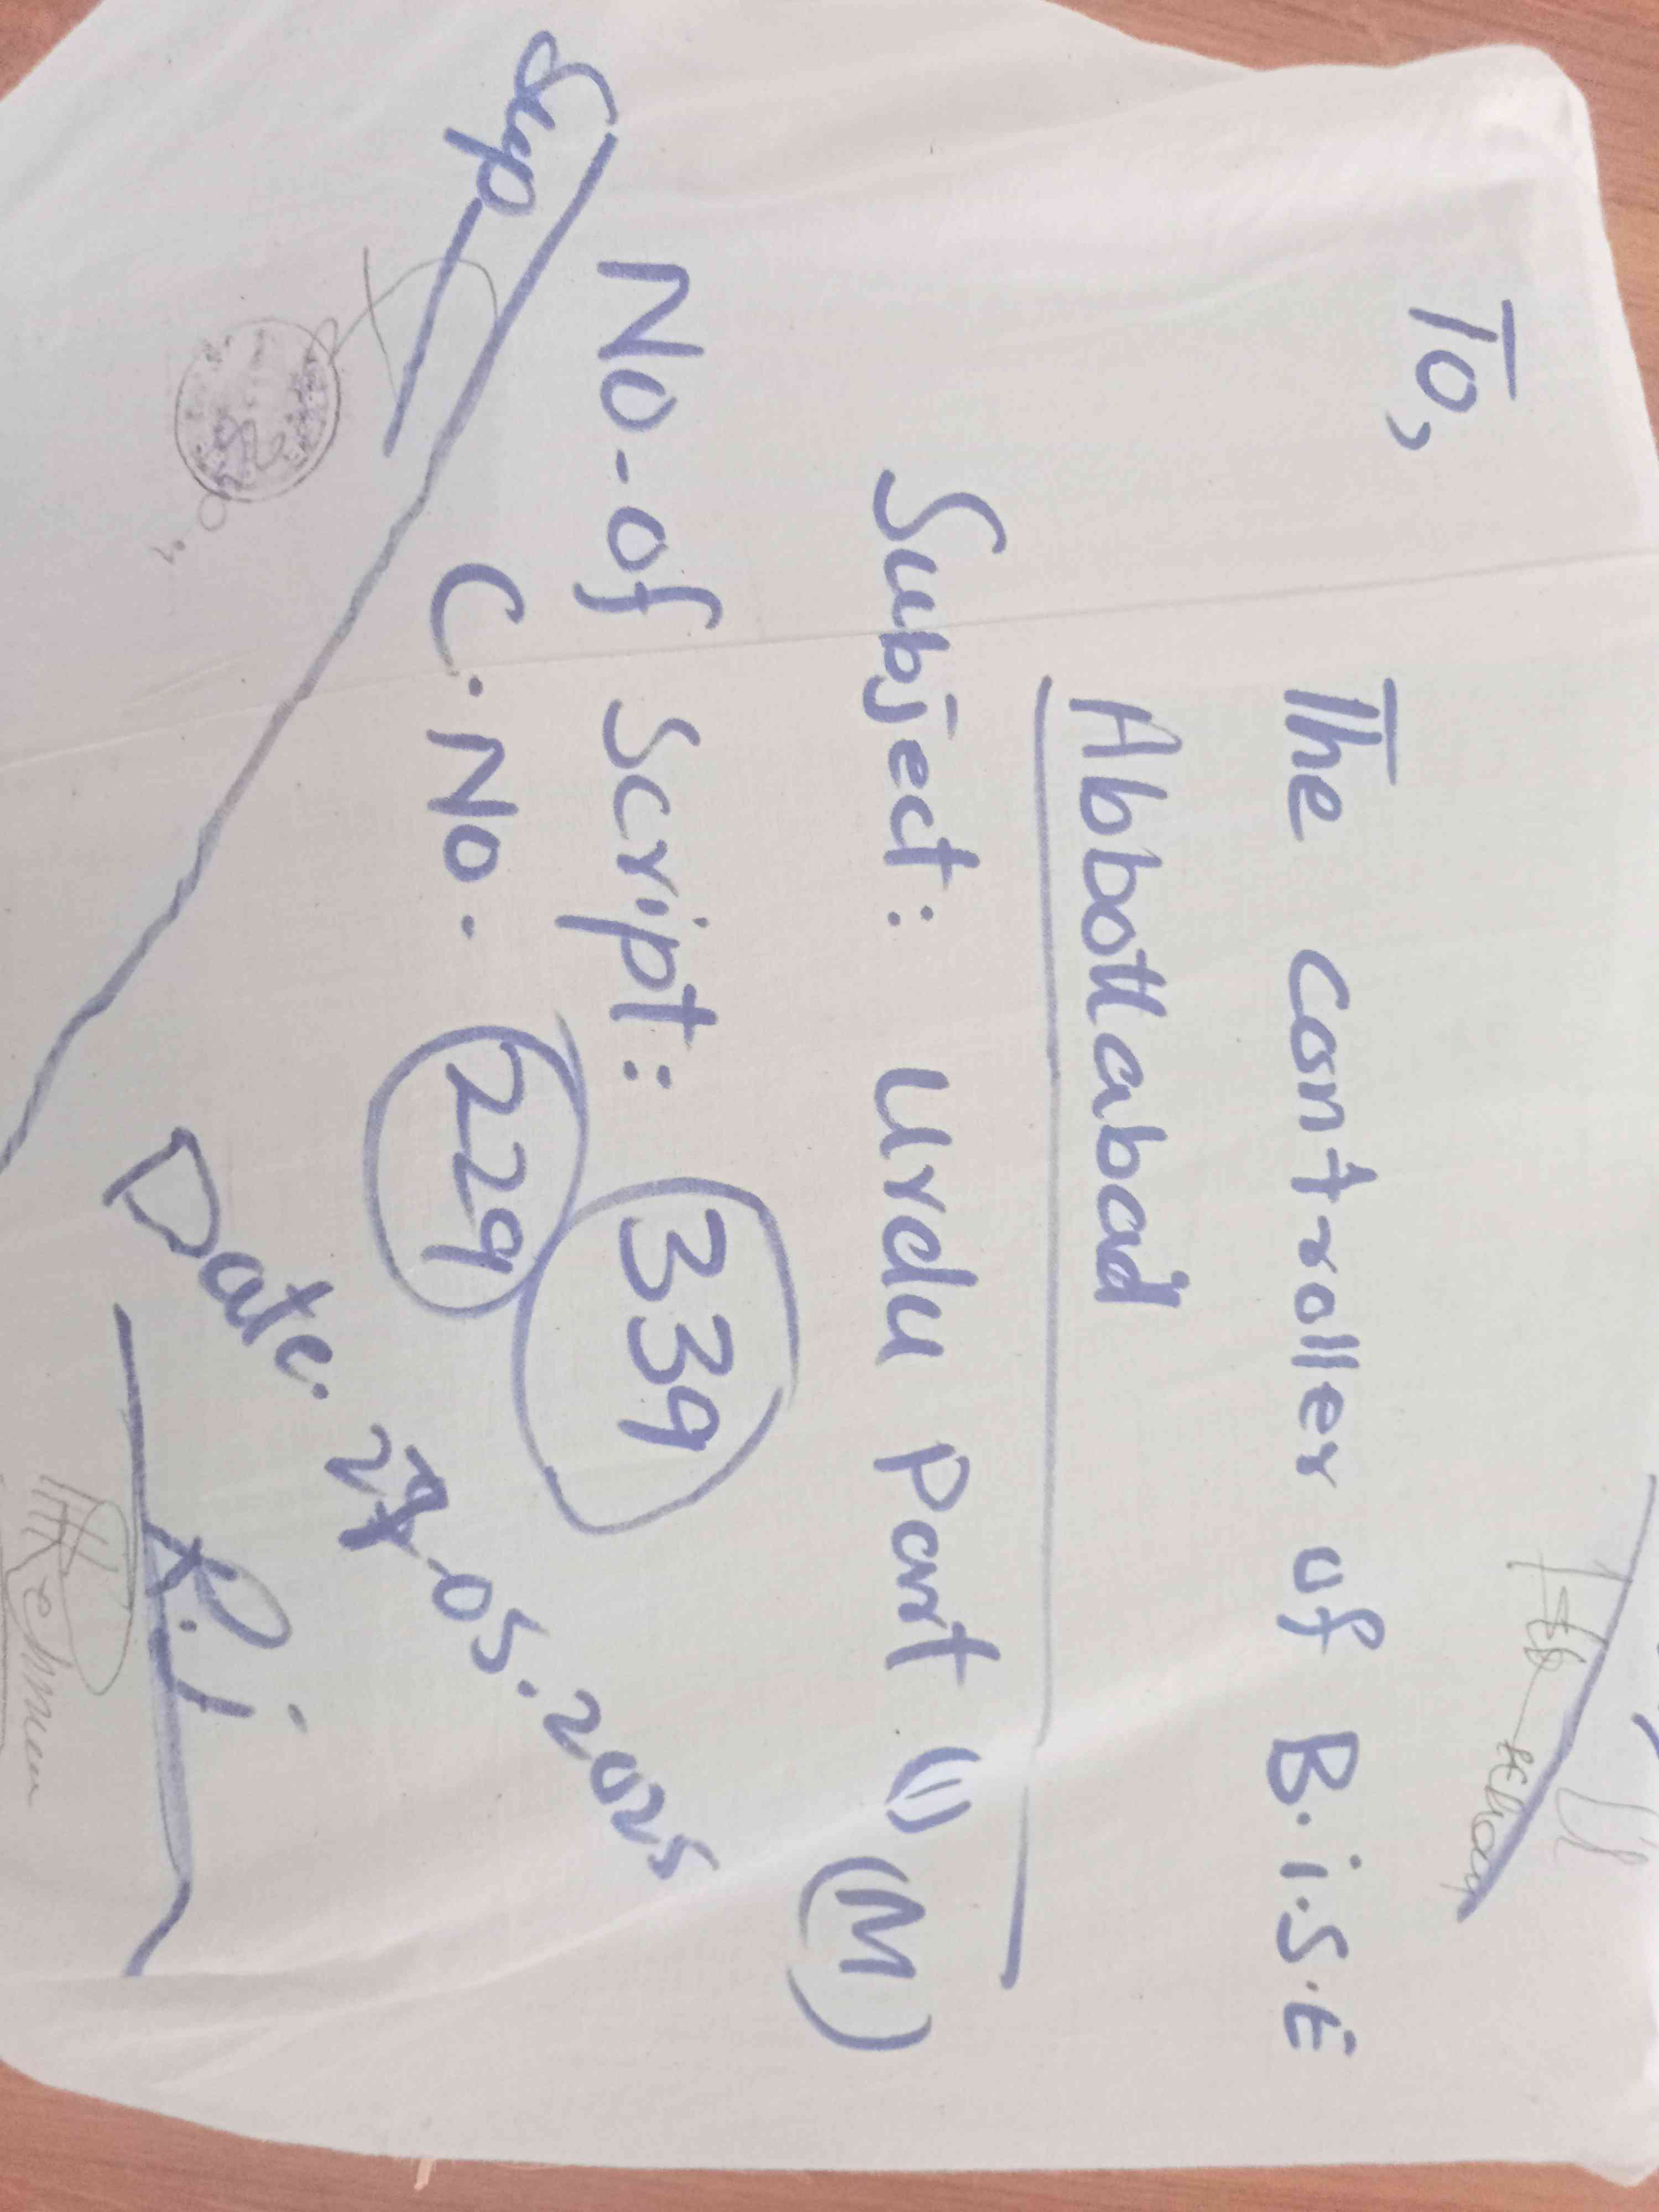 To,
The Controller of B.i.S.E
Abbottabad
Subject: Urdu Part (I) (M)
No-of Script: 339
C.No. 229
Sup
Date. 27-05.2025
R.i